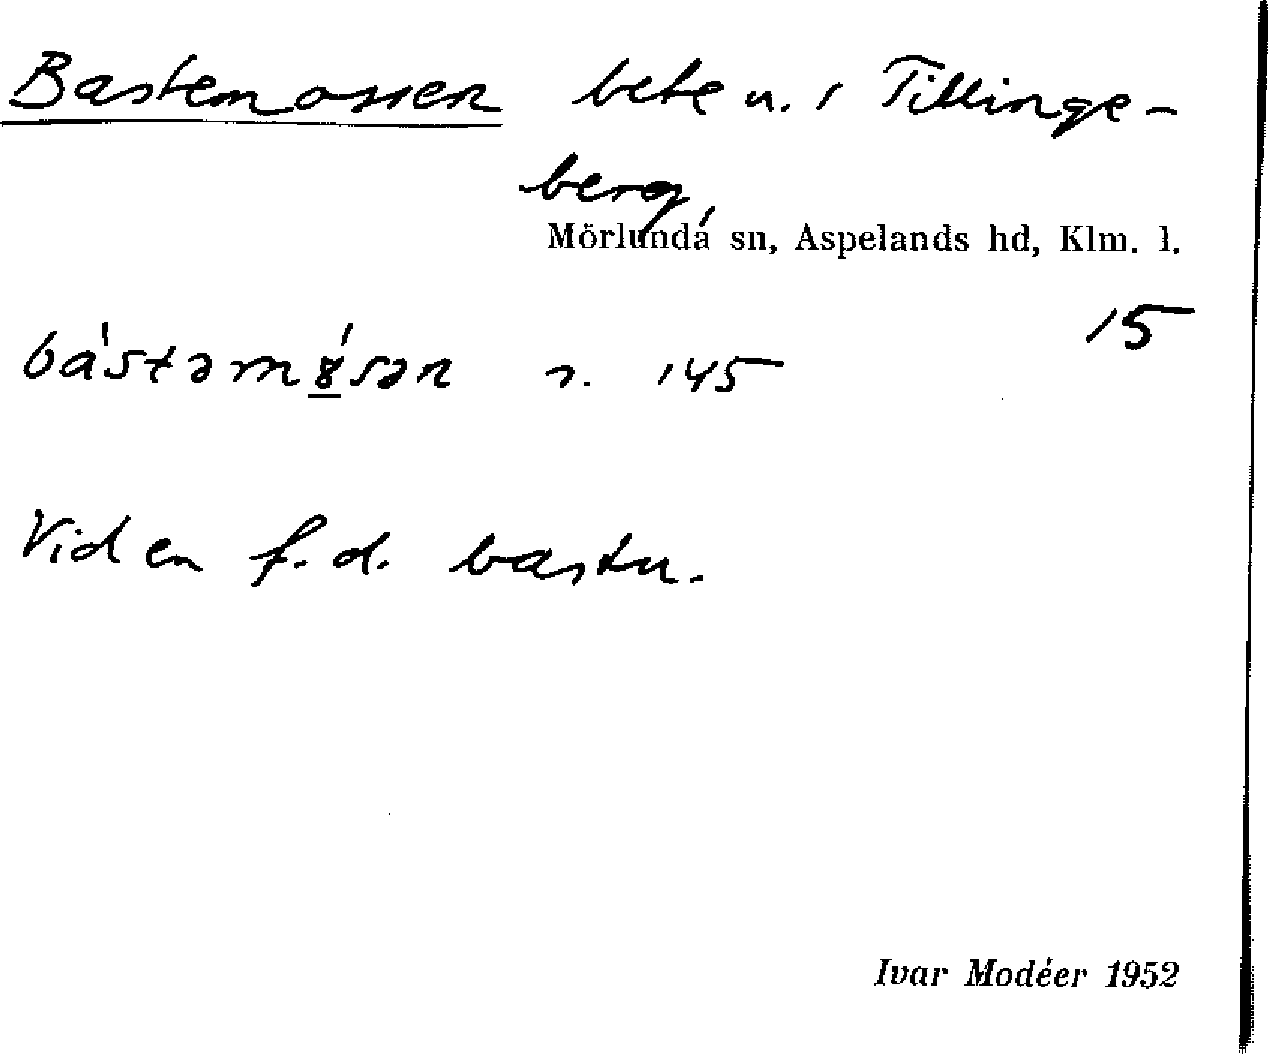 Bastemossen bete n. i Tillinge-
berg,
Mörlunda sn, Aspelands hd, Klm. l.
15
bástəmɣ́sən r. 145
Vid en f.d. bastu.
Ivar Modéer 1952